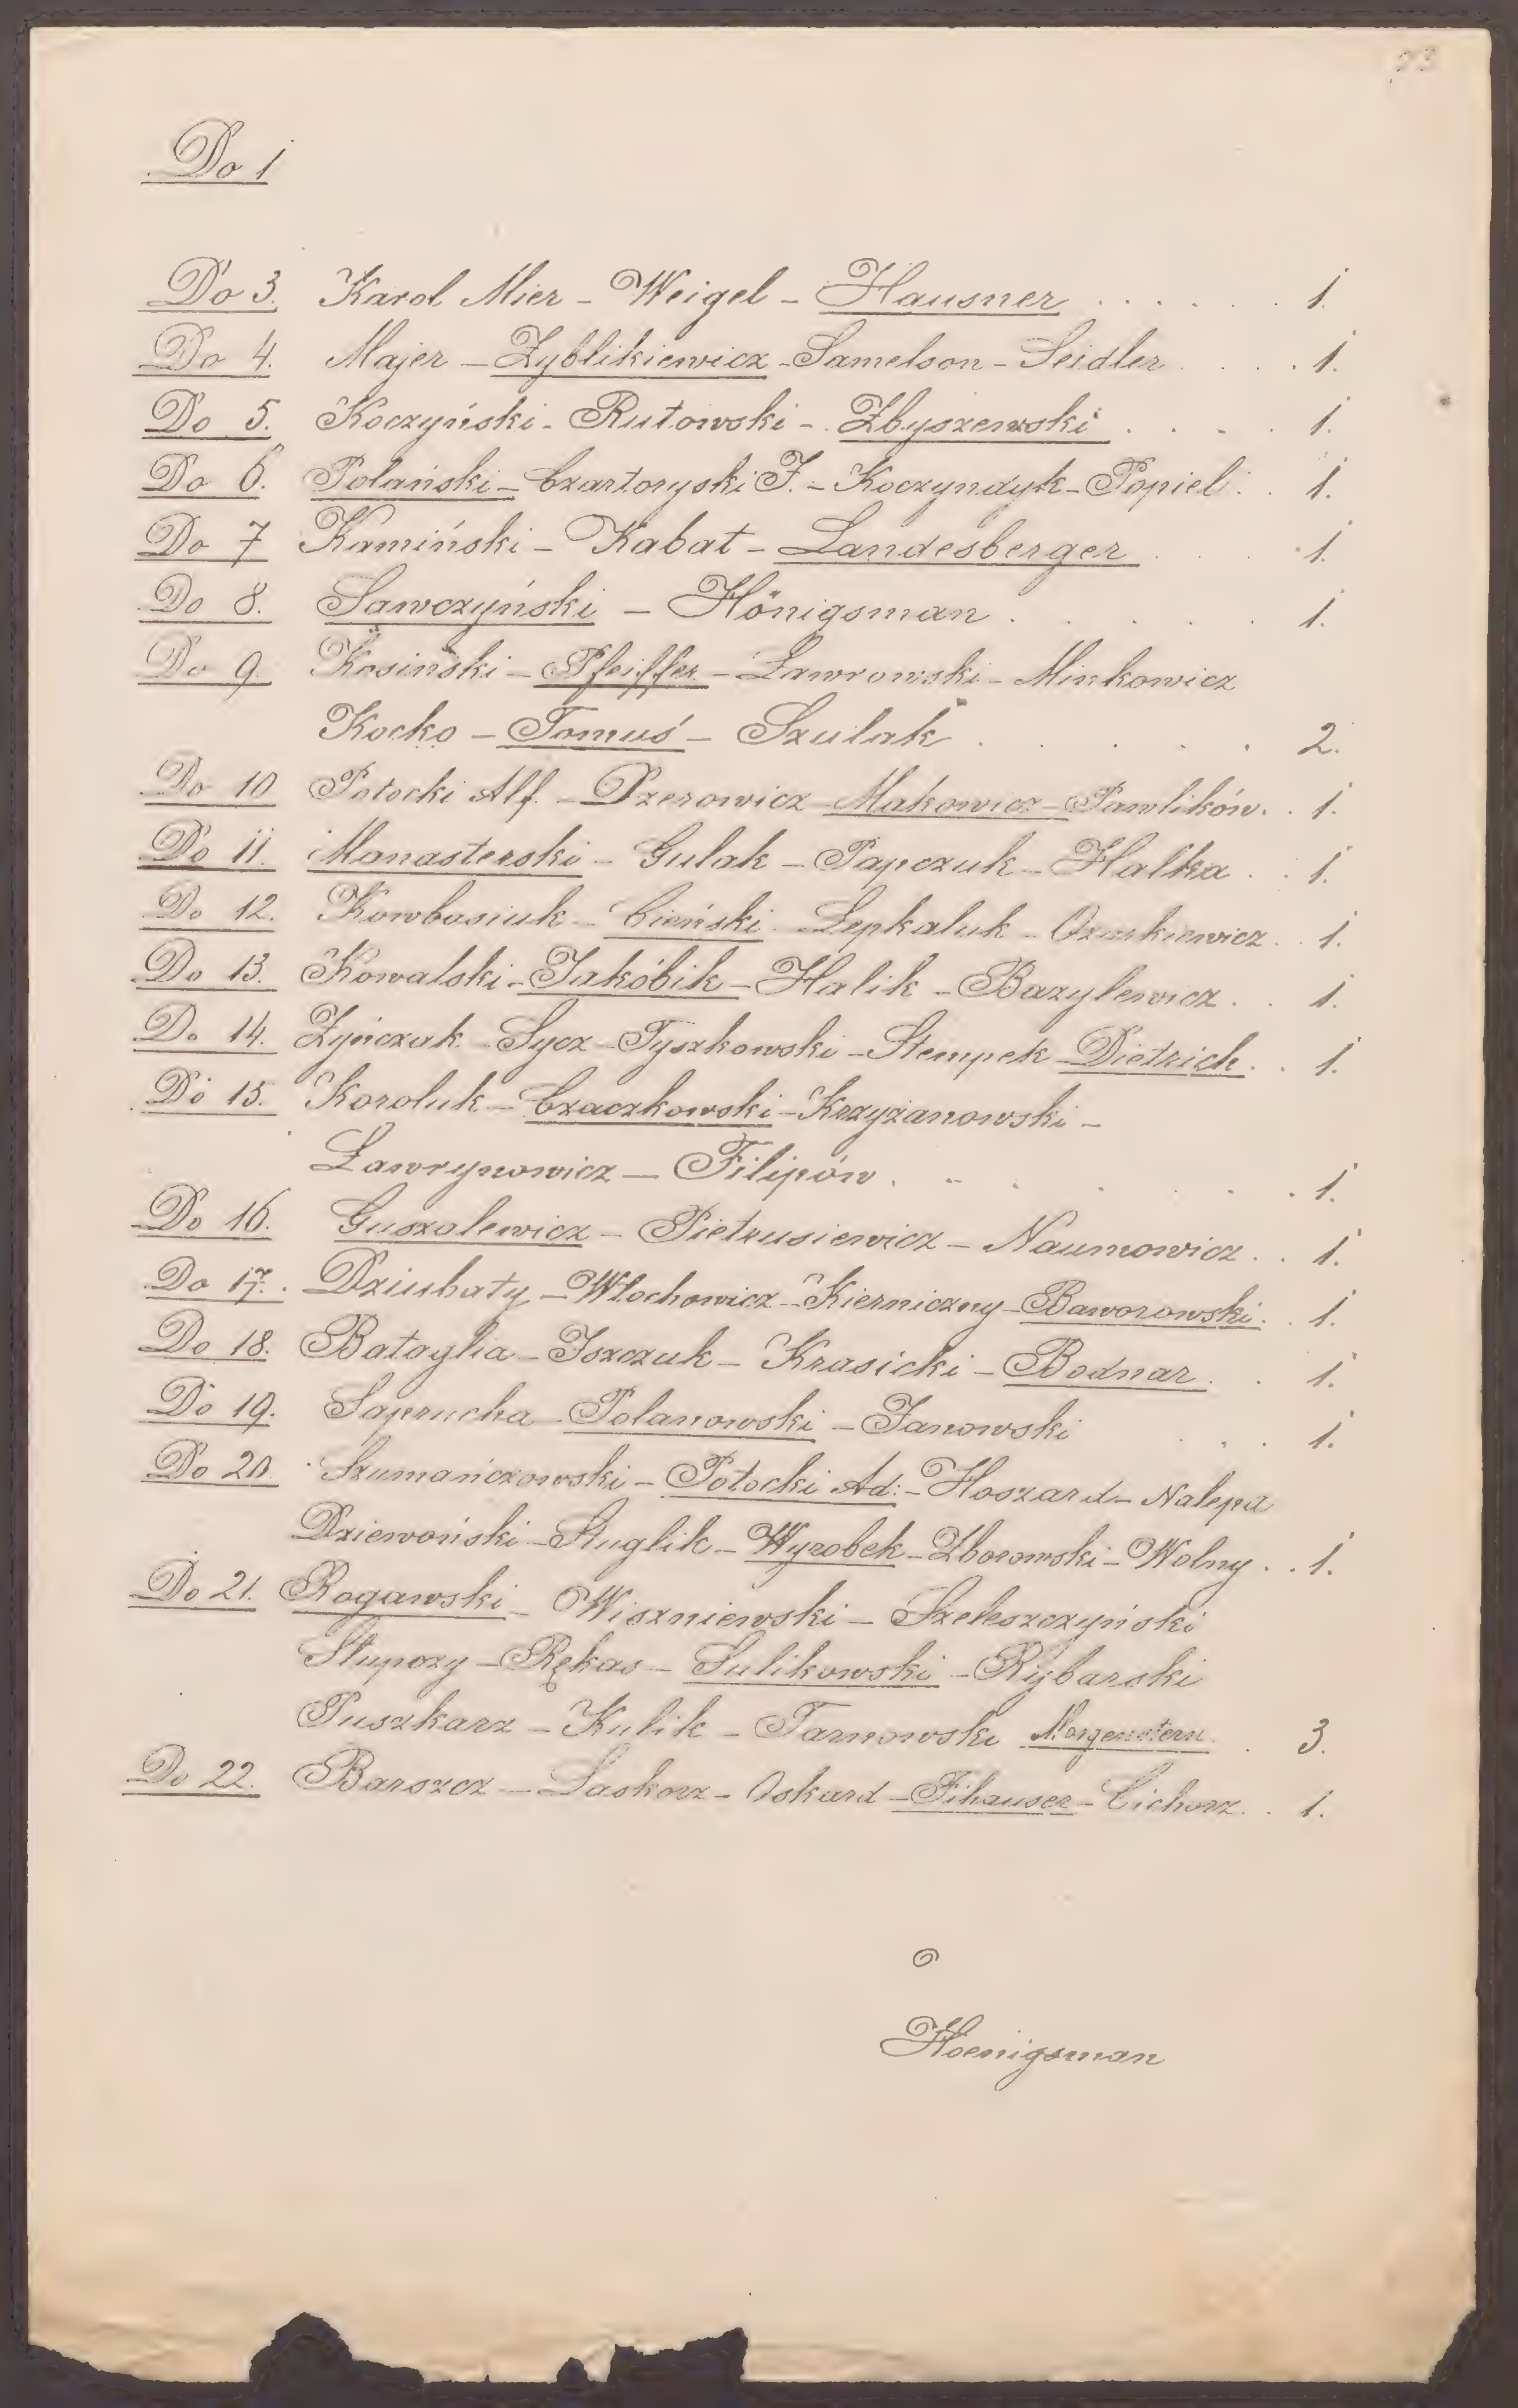 23
Do 1
Do 3. Karol Mier - Weigel - Hausner . . . . . . 1.
Do 4. Majer - Zyblikiewicz - Samelson - Seidler . . . . 1.
Do 5. Koczyński - Rutowski - Zbyszewski . . . . 1.
Do 6. Polański - Czartoryski J. - Koczyndyk - Popiel . . 1.
Do 7 Kamiński - Kabat - Landesberger . . . 1.
Do 8. Sawczyński - Hönigsman . . . . . . 1.
Do 9. Kosiński - Pfeiffer - Ławrowski - Minkowicz
Kocko - Tomuś - Szulak . . . . . 2.
Do 10 Potocki Alf. - Dzerowicz - Makowicz - Pawlików . . 1.
Do 11. Monasterski - Gulak - Papczuk - Halka . . 1.
Do 12. Kowbasiuk - Cieński - Łepkaluk - Ozarkiewicz . . 1.
Do 13. Kowalski - Jakóbik - Halik - Bazylewicz . . 1.
Do 14. Żyńczak - Sycz - Tyszkowski - Stempek - Dietrich . . 1.
Do 15. Koroluk - Czaczkowski - Krzyżanowski -
Ławrynowicz - Filipów . . . . . . 1.
Do 16. Guszalewicz - Pietrusiewicz - Naumowicz . . 1.
Do 17. Dziubaty - Włochowicz - Kierniczny - Baworowski . . 1.
Do 18. Bataglia - Iszczuk - Krasicki - Bodnar . . 1.
Do 19. Saprucha - Polanowski - Janowski . . . 1.
Do 20. Szumańczowski - Potocki Ad: - Hoszard - Nalepa
Dziewoński - Stuglik - Wyrobek - Zborowski - Wolny . . 1.
Do 21. Rogawski - Wiszniewski - Szeleszczyński
Słupczy - Rękas - Sulikowski - Rybarski
Puszkarz - Kulik - Tarnowski Morgenstern . 3.
Do 22. Barszcz - Laskorz - Oskard - Fihauser - Cichorz . . 1.
Hoenigsman